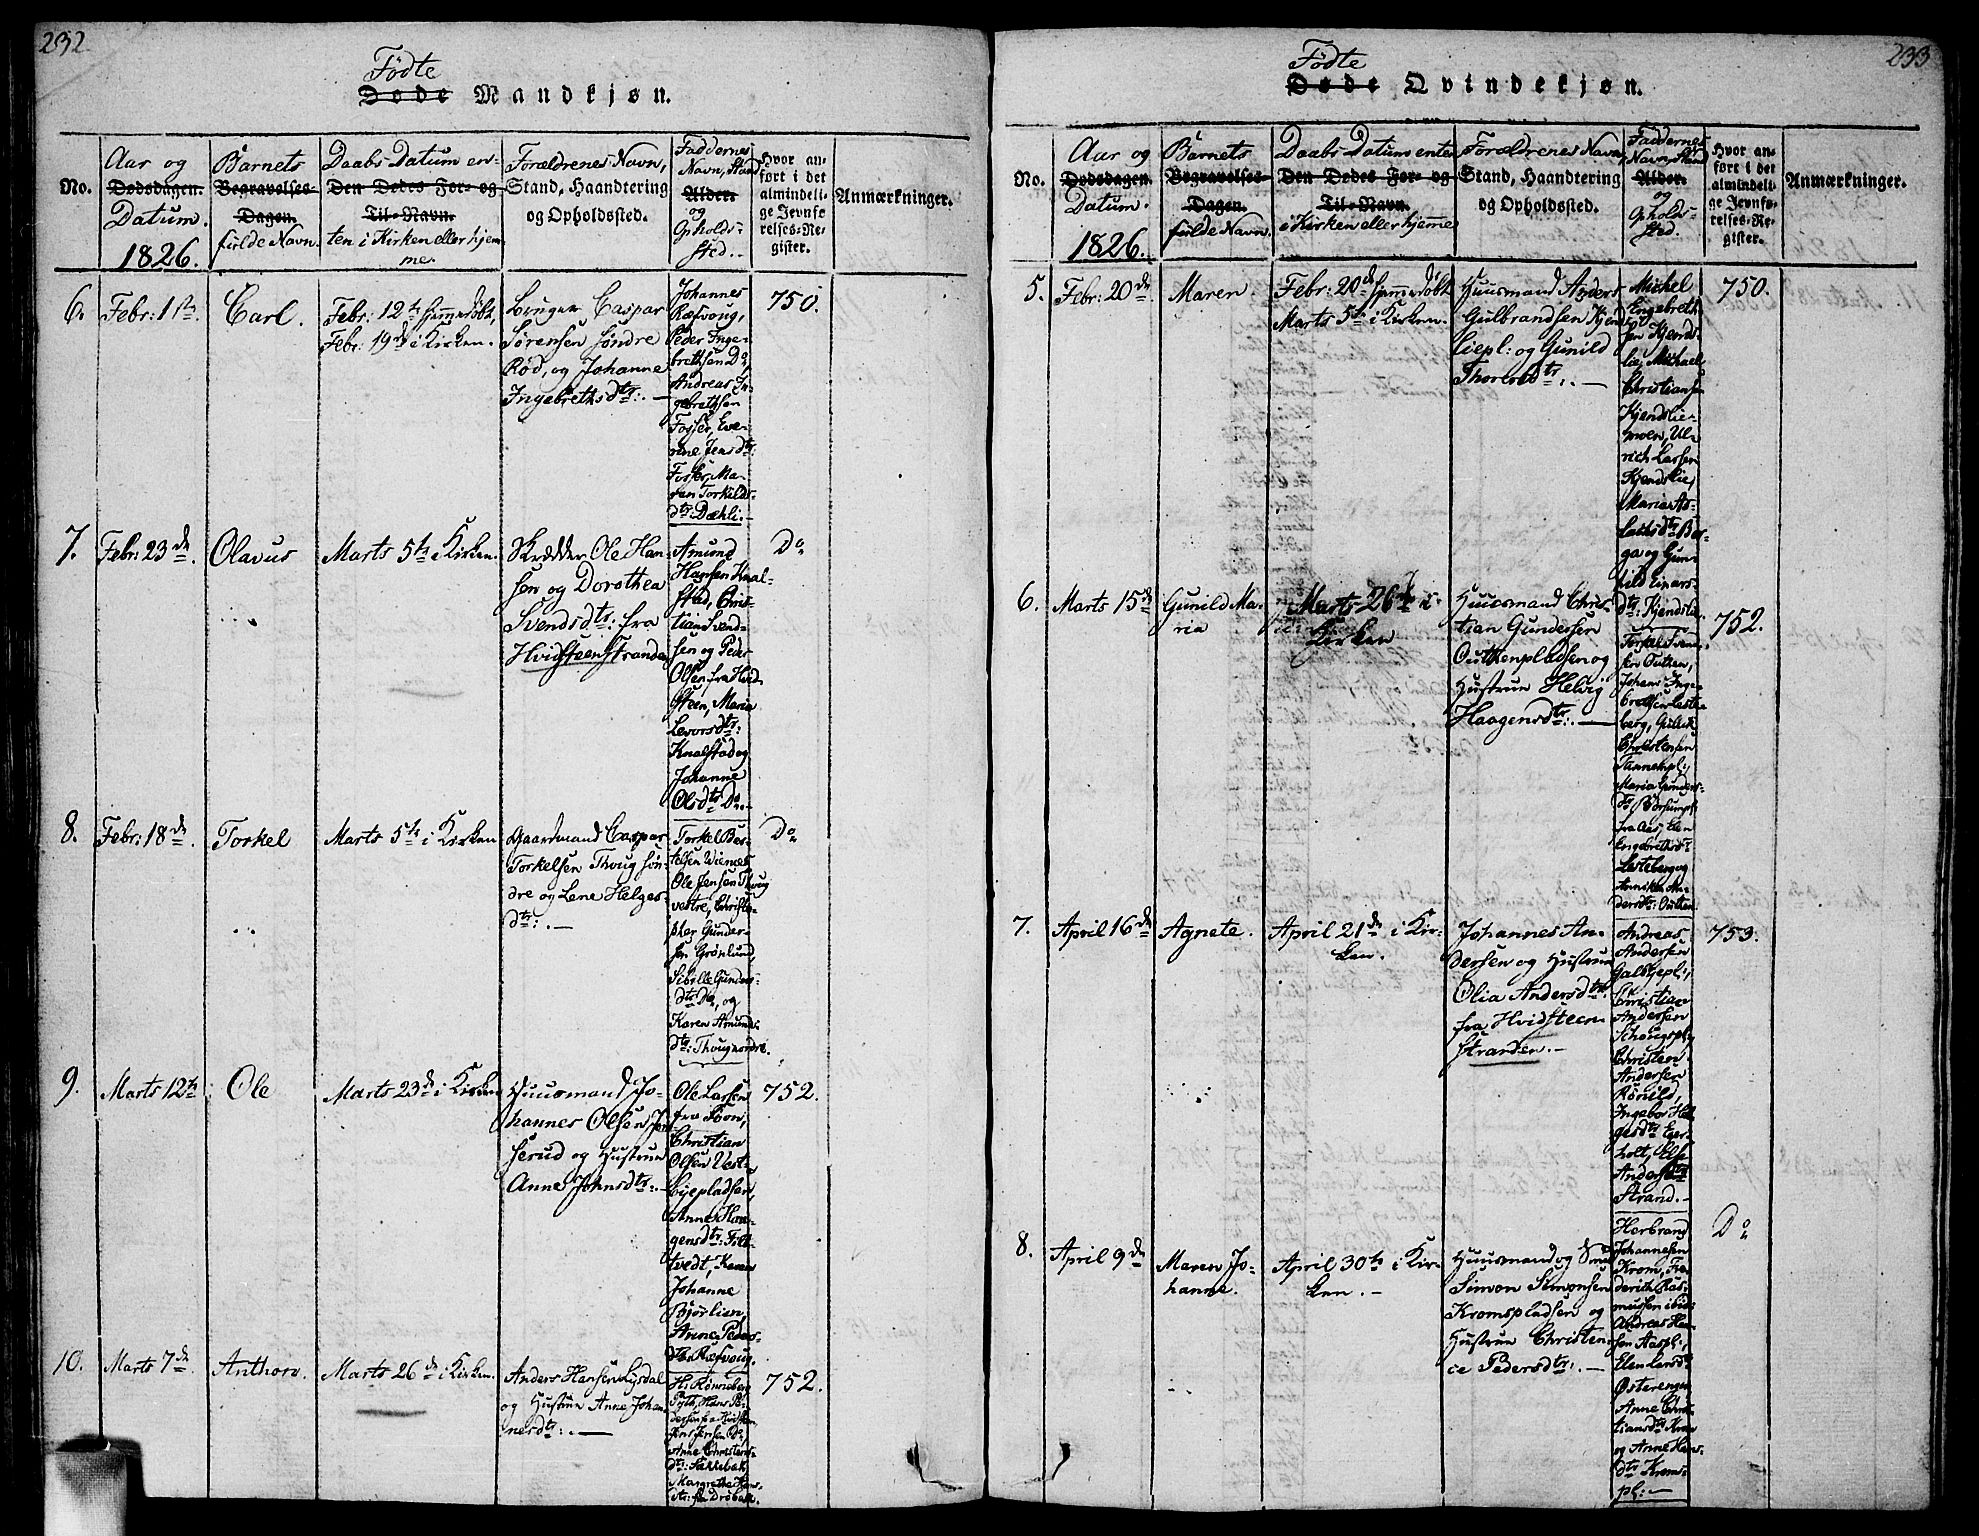 232.
Födte
Døde Mandkjøn.
No.
Aar og
Dødsdagen.
Datum.
1826.
Barnets
Begravelses-
Dagen.
fulde Navn.
Daabs-Datum en-
Den Dødes For- og
Til-Navn.
ten i Kirken eller hjem-
me.
Forældrenes Navn,
Stand, Haandtering
og Opholdssted.
Faddernes
Navn, Stand
Alder.
og
Opholds-
sted.
Hvor an-
ført i det
almindeli-
ge Jevnfø-
relses-Re-
gister.
Anmærkninger.
6.
Febr: 1ste
Carl.
Febr: 12te hjemmedöbt,
Febr: 19de i Kirken.
Caspar
Sörensen söndre
Röd, og Johanne
Ingebrethsdtr:.—
Johannes
Ræfvoug,
Peder Inge-
brethsen Do
Andreas In-
gebrethsen
Fosser, Eve-
rine Jensdtr:
Fosser, Ma-
ren Torkilds-
dtr: Dæhli.—
750.
7.
Febr: 23de
Olavus
Marts 5te i Kirken.
Skrædder Ole Han-
sen og Dorothea
Svendsdtr: fra
Hvidsteen Stranden
Amund
Hansen Knal-
stad, Chris-
tian Svend-
sen og Peder
Olsen fra Hvid-
steen, Maria
Levorsdtr:
Knalstad og
Johanne
Olsdtr Do.—
Do
8.
Febr: 18de
Torkel
Marts 5te i Kirken
Gaardmand Caspar
Torkelsen Thoug sön-
dre og Lene Helges-
dtr:.—
Torkel
Ole Jensen Thoug
vestre, Christo-
pher Gunder-
sen Grönlund,
Sibille Gunders-
dtr Do, og
Karen Amunds-
dtr: Thoug nordre.
Do
9.
Marts 12te
Ole
Marts 23de i Kirken
Huusmand Jo-
hannes Olsen
serud og Hustrue
Anne Johnsdtr:.—
Ole Larsen
fra
Christian
Olsen Vest-
byepladsen,
Anne Haa-
gensdtr:
tvedt, Karen
Johanne
Björlien,
Anne Peders-
dtr Ræfvoug.
752.
10.
Marts 7de
Anthon.
Marts 26de i Kirken.
Anders Hansen
og Hustrue Anne Johan-
nesdtr:.—
Hr. Rönneberg
Hans Pe-
dersen fra Hvidsten
Jens Jensen Do,
Anne Christens-
dtr:
Margrethe Hans-
dtr: fra Dröbak.
752.
233
Födte
Døde Qvindekjøn.
No.
Aar og
Dødsdagen.
Datum.
1826.
Barnets
Begravelses-
Dagen.
fulde Navn.
Daabs Datum enten
Den Dødes For- og
Til-Navn.
i Kirken eller hjemme
Forældrenes Navn,
Stand, Haandtering
og Opholdssted.
Faddernes
Navn, Stand
Alder.
og
Opholds-
sted.
Hvor an-
ført i det
almindeli-
ge Jevnfø-
relses-Re-
gister.
Anmærkninger.
5.
Febr: 20de
Maren
Febr: 20de hjemmedöbt
Marts 5te i Kirken.
Huusmand Anders
Gulbrandsen Kjend
liepl: og Gunild
Thoresdtr:.—
Michel
Engebreth
sen Kjends-
lie, Michael
Christiansen
Kjendslie-
moen, Ul-
rich Larsen
Kjendslie,
Maria As-
laksdtr Ber-
ga og Gun-
hild Einars-
dtr: Kjendslie.
750.
6.
Marts 15de
Gunild Ma-
ria
Marts 26de i
Kirken
Huusmand Chris-
tian Gundersen
Outhenpladsen og
Hustrue Helvig
Haagensdtr:.—
Outhen,
Johans Inge-
brethsen Leste-
berg,
Christensen
Maria Gunders-
dtr
Ingebrethsdtr
Lesteberg og
Anniken An-
dersdtr: Outhen.
752.
7.
April 16de
Agnete.
April 21de i Kir-
ken.
Johannes An-
dersen og Hustrue
Olia Andersdtr:
fra Hvidsteen-
Stranden.—
Andreas
Andersen
Galbyepl:,
Christian
Andersen
Christen
Andersen
Rönild,
Ingebor Hel-
gesdtr Eger-
holt, Else
Andersdtr
Strand.—
753.
8.
April 9de
Maren Jo-
hanne.
April 30te i Kir-
ken.—
Huusmand og Smed
Simon Simonsen
Kromspladsen og
Hustrue Christen-
ce Pedersdtr:.—
Herbrand
Johannesen
Krom, Fre-
derich Ras-
mussen ibid:
Andreas Han-
sen Aaspl:,
Elen Larsdtr
Österengen
Anne Chris-
tiansdtr Krom
og Anne Hans-
dtr Kroms-
pl:—
Do